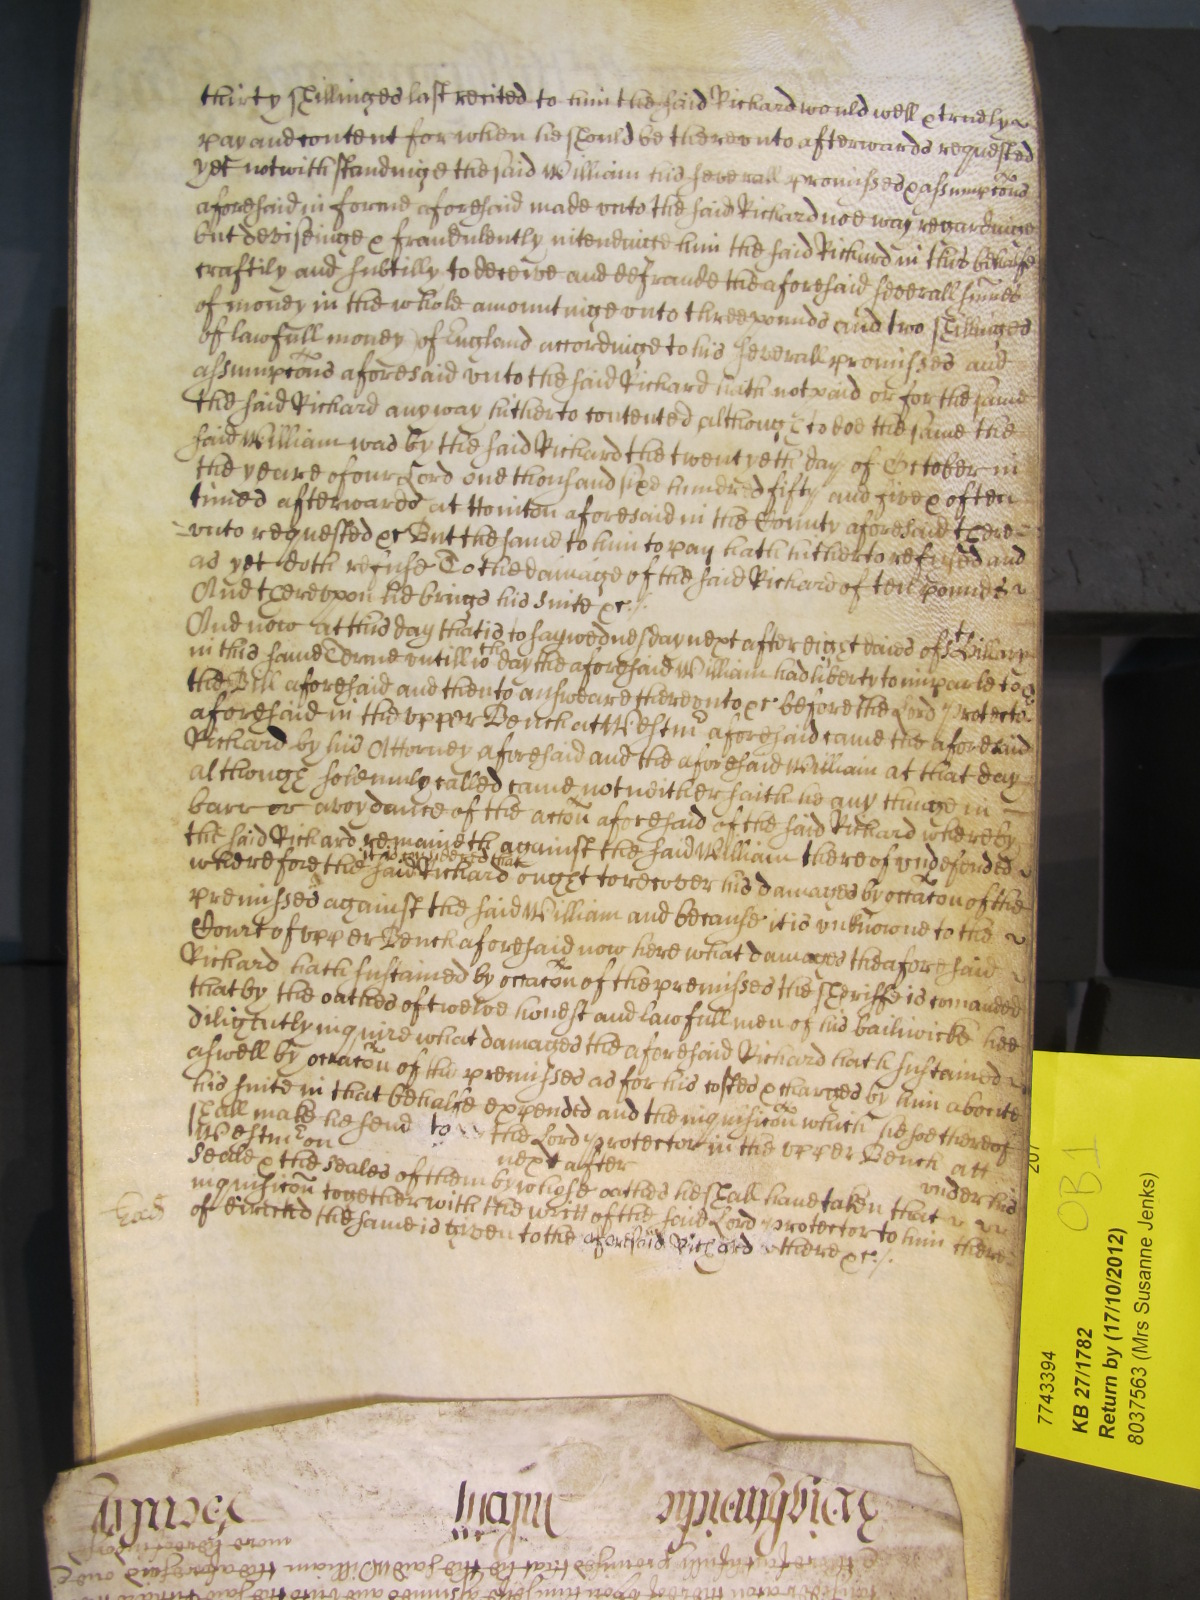 thirty shillinges last recited to him the said Richard would well & truely
pay and content for when he should be therevnto afterwards requested
yet notwithstandinge the said William his severall promisses & assumpcõns
aforesaid in forme aforesaid made vnto the said Richard noe way regardinge
but devisinge & fraudulently intendinge him the said Richard in this behalfe
craftily and subtilly to deceive and defraude the aforesaid severall summes
of money in the whole amountinge vnto three pounds and two shillinges
of lawfull money of England accordinge to his severall promisses and
assumpcõns aforesaid vnto the said Richard hath not paid or for the same
the said Richard any way hitherto contented although to doe the same the
said William was by the said Richard the twentyeth day of October in
the yeare of our Lord one thousand sixe hundred fifty and five & often
times afterwards at Honiton aforesaid in the County aforesaid there=
=vnto requested &c But the same to him to pay hath hitherto refused and
as yet doth refuse To the damage of the said Richard of ten pounds
And therevpon he brings his suite &c./.
And now at this day that is to say wednesday next after eight daies of St Hillary
in this same Terme vntill wch day the aforesaid William had liberty to imparle to
the Bill aforesaid and then to answeare therevnto &c before the Lord Protector
aforesaid in the vpper Bench att Westmr aforesaid came the aforesaid
Richard by his Attorney aforesaid and the aforesaid William at that day
although solemnly called came not neither saith he any thinge in
barr or avoydance of the accõn aforesaid of the said Richard whereby
the said Richard remaineth against the said William thereof vndefended
wherefore the said Richard ought to recover his damages by occacõn of the
premisses against the said William and because it is vnknowne to the
Court of vpper Bench aforesaid now here what damages the aforesaid
Richard hath sustained by occacõn of the premisses the Sheriffe is comanded
that by the oathes of twelve honest and lawfull men of his bailiwicke hee
diligently inquire what damages the aforesaid Richard hath sustained
aswell by occacõn of the premisses as for his costes & charges by him aboute
his suite in that behalfe expended and the inquisicõn which he soe thereof
shall make he send to the Lord Protector in the vpper Bench att
Westmr on next after vnder his
seale & the seales of them by whose oathes he shall have taken that
inquisicõn together with the writt of the said Lord Protector to him there=
of directed the same is given to the aforesaid Richard there &c./.
7743394
KB 27/1782
Return by (17/10/2012)
8037563 (Mrs Susanne Jenks)
OB1